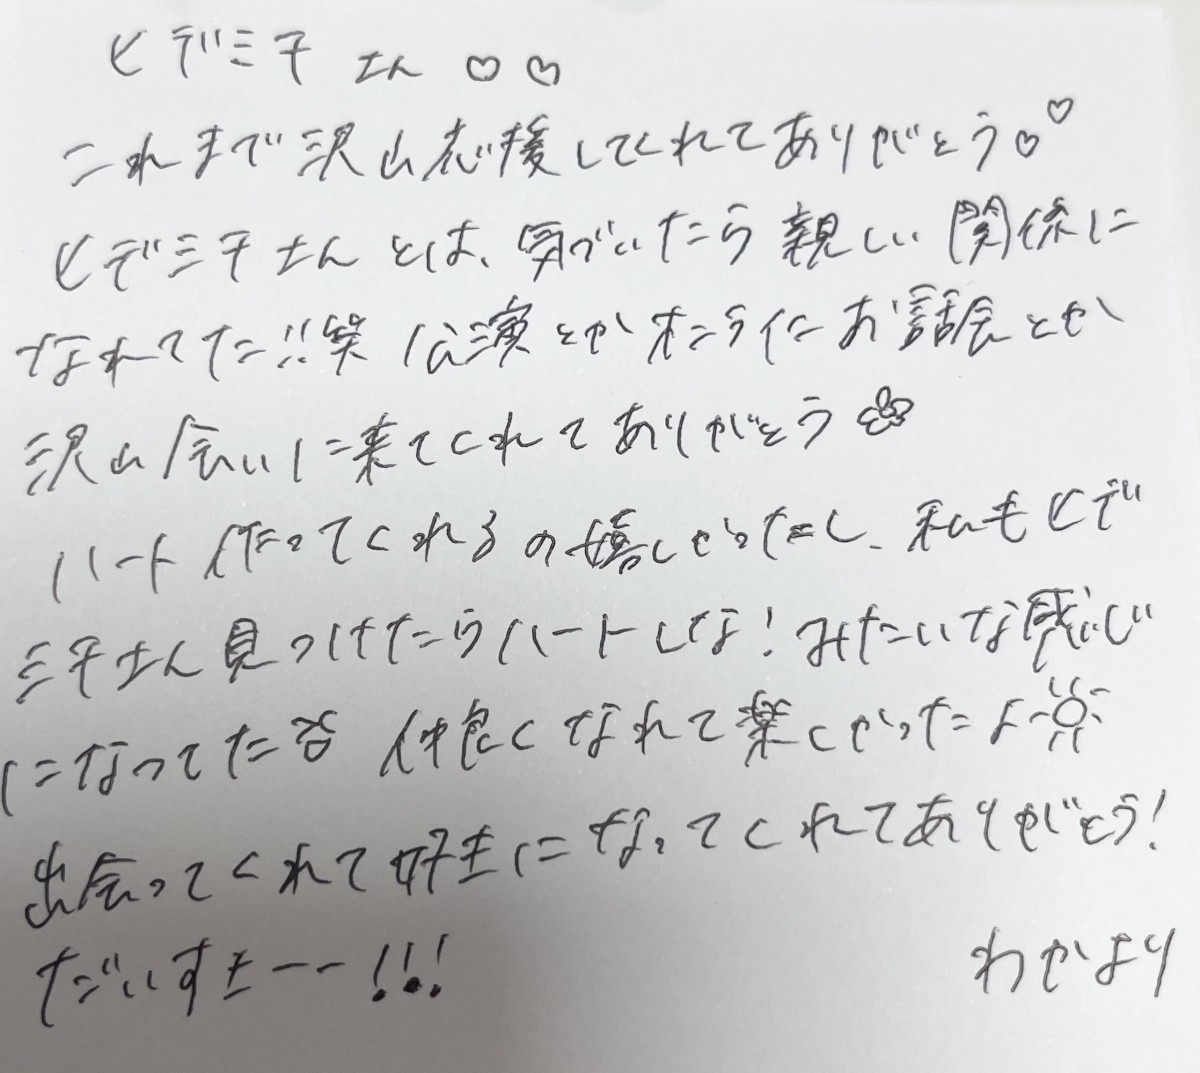 ヒデミチさん♡♡
これまで沢山応援してくれてありがとう♡♡
ヒデミチさんとは、気づいたら親しい関係に
なれてた!!笑 公演とかオンラインお話会とか
沢山会いに来てくれてありがとう
ハート作ってくれるの嬉しかったし、私もヒデ
ミチさん見つけたらハートしな!みたいな感じ
になってた 仲良くなれて楽しかったよ
出会ってくれて好きになってくれてありがとう!
だいすきーー!!!
わかより